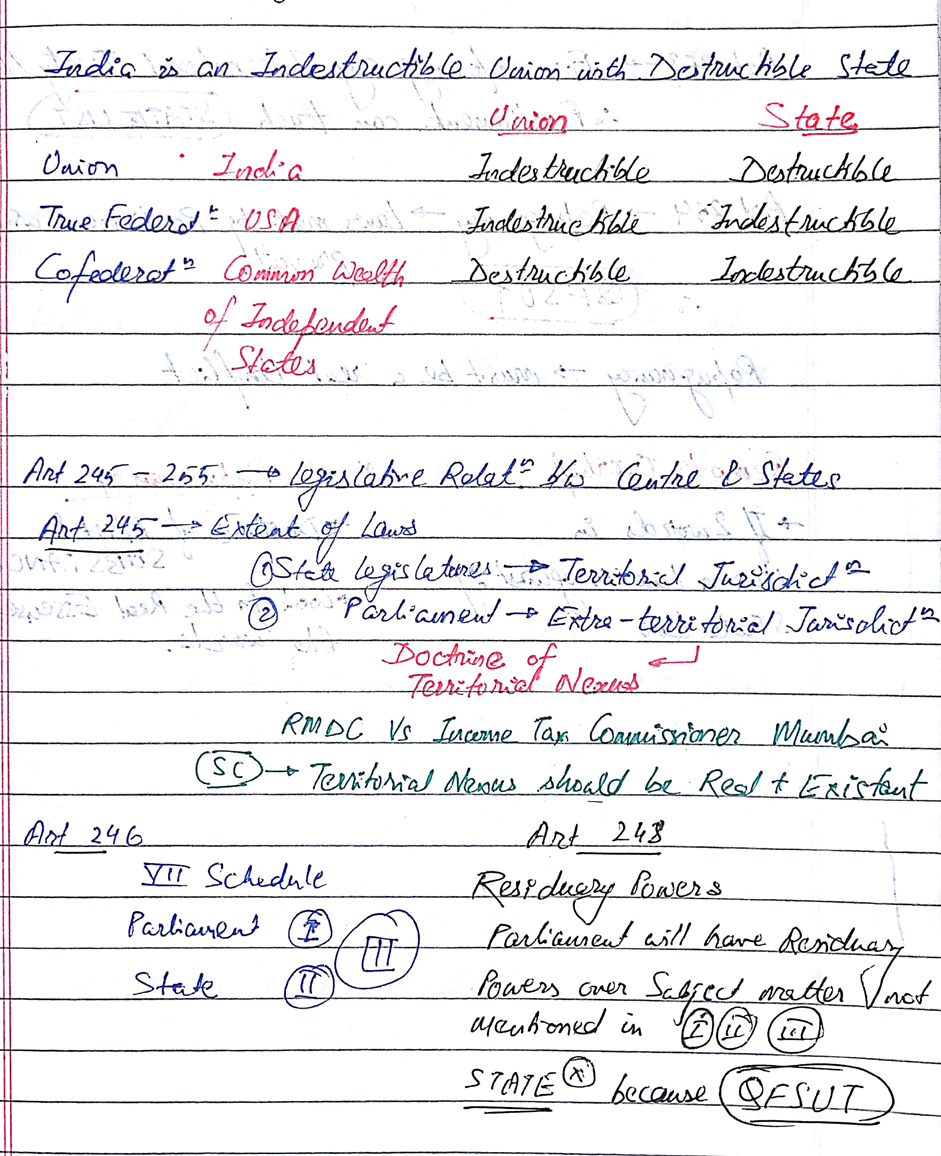 India is an Indestructible Union with Destructible State
Union State
Union • India Indestructible Destructible
True Federatⁿ USA Indestructible Indestructible
Cofederatⁿ Common Wealth Destructible Indestructible
of Independent
States
Art 245 - 255 → Legislative Relatⁿ b/w Centre & States
Art 245 → Extent of Laws
① State Legislatures → Territorial Jurisdictⁿ
② Parliament → Extra-territorial Jurisdictⁿ
Doctrine of
Territorial Nexus
RMDC Vs Income Tax Commissioner Mumbai
SC → Territorial Nexus should be Real + Existant
Art 246 Art 248
VII Schedule Residuary Powers
Parliament I III Parliament will have Residuary
State II Powers over Subject matter not
mentioned in I II III
STATE ⓧ because QFSUT